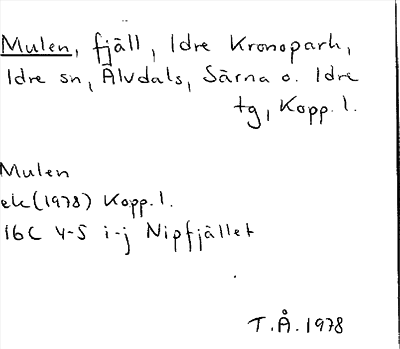 Mulen, fjäll, Idre Kronopark,
Idre sn, Älvdals, Särna o. Idre
tg, Kopp. l.
Mulen
ek (1978) Kopp. l.
16C 4-5 i-j Nipfjället
T.Å. 1978